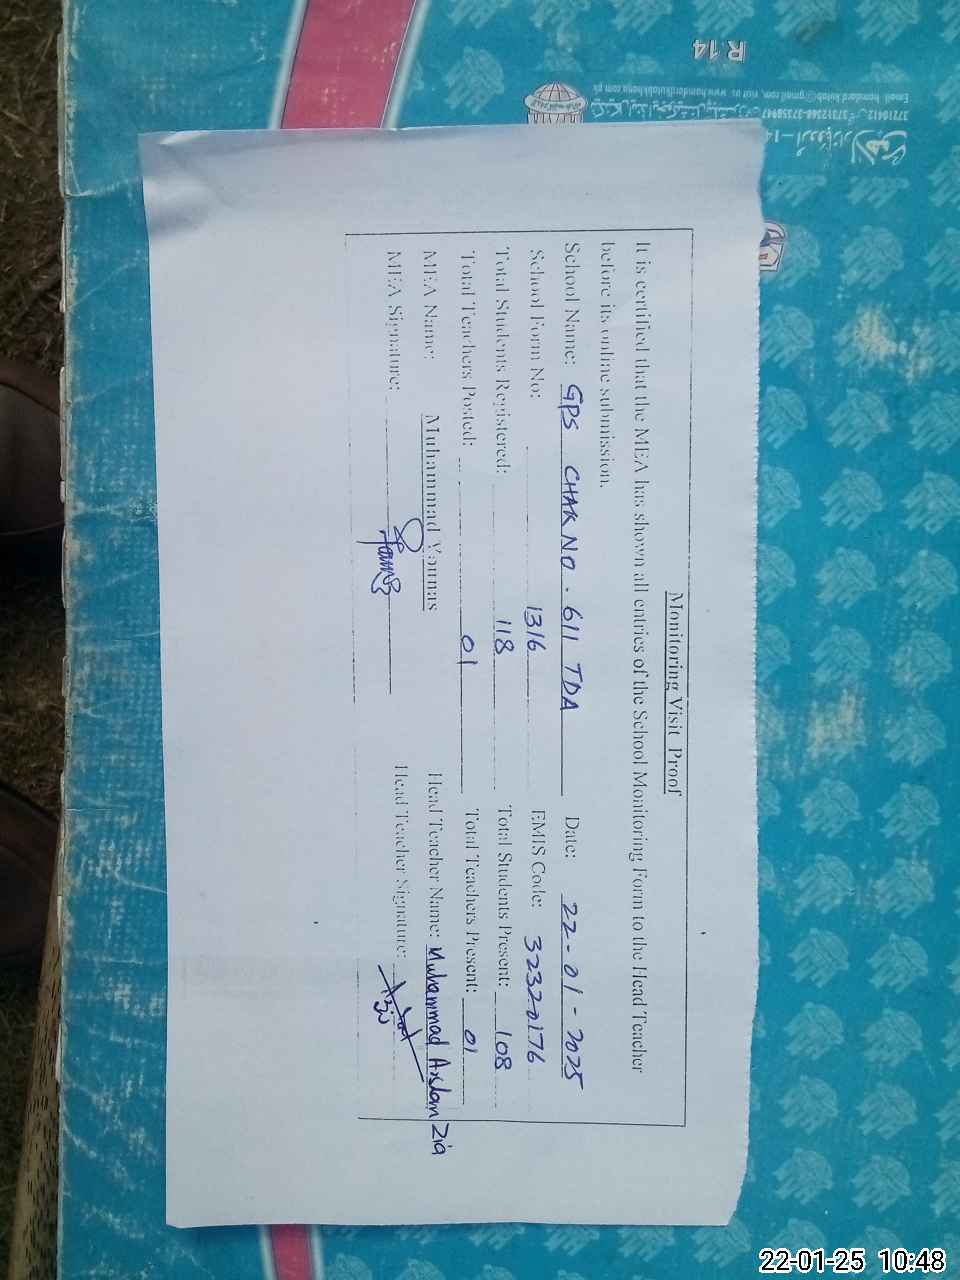 R 14
Monitoring Visit Proof
It is certified that the MEA has shown all entries of the School Monitoring Form to the Head Teacher
before its online submission.
School Name: GPS CHAK NO. 611 TDA Date: 22-01-2025
School Form No: 1316 EMIS Code: 32320176
Total Students Registered: 118 Total Students Present: 108
Total Teachers Posted: 01 Total Teachers Present: 01
MEA Name: Muhammad Younas Head Teacher Name: Muhammad Arslan Zia
MEA Signature: Head Teacher Signature:
22-01-25 10:48